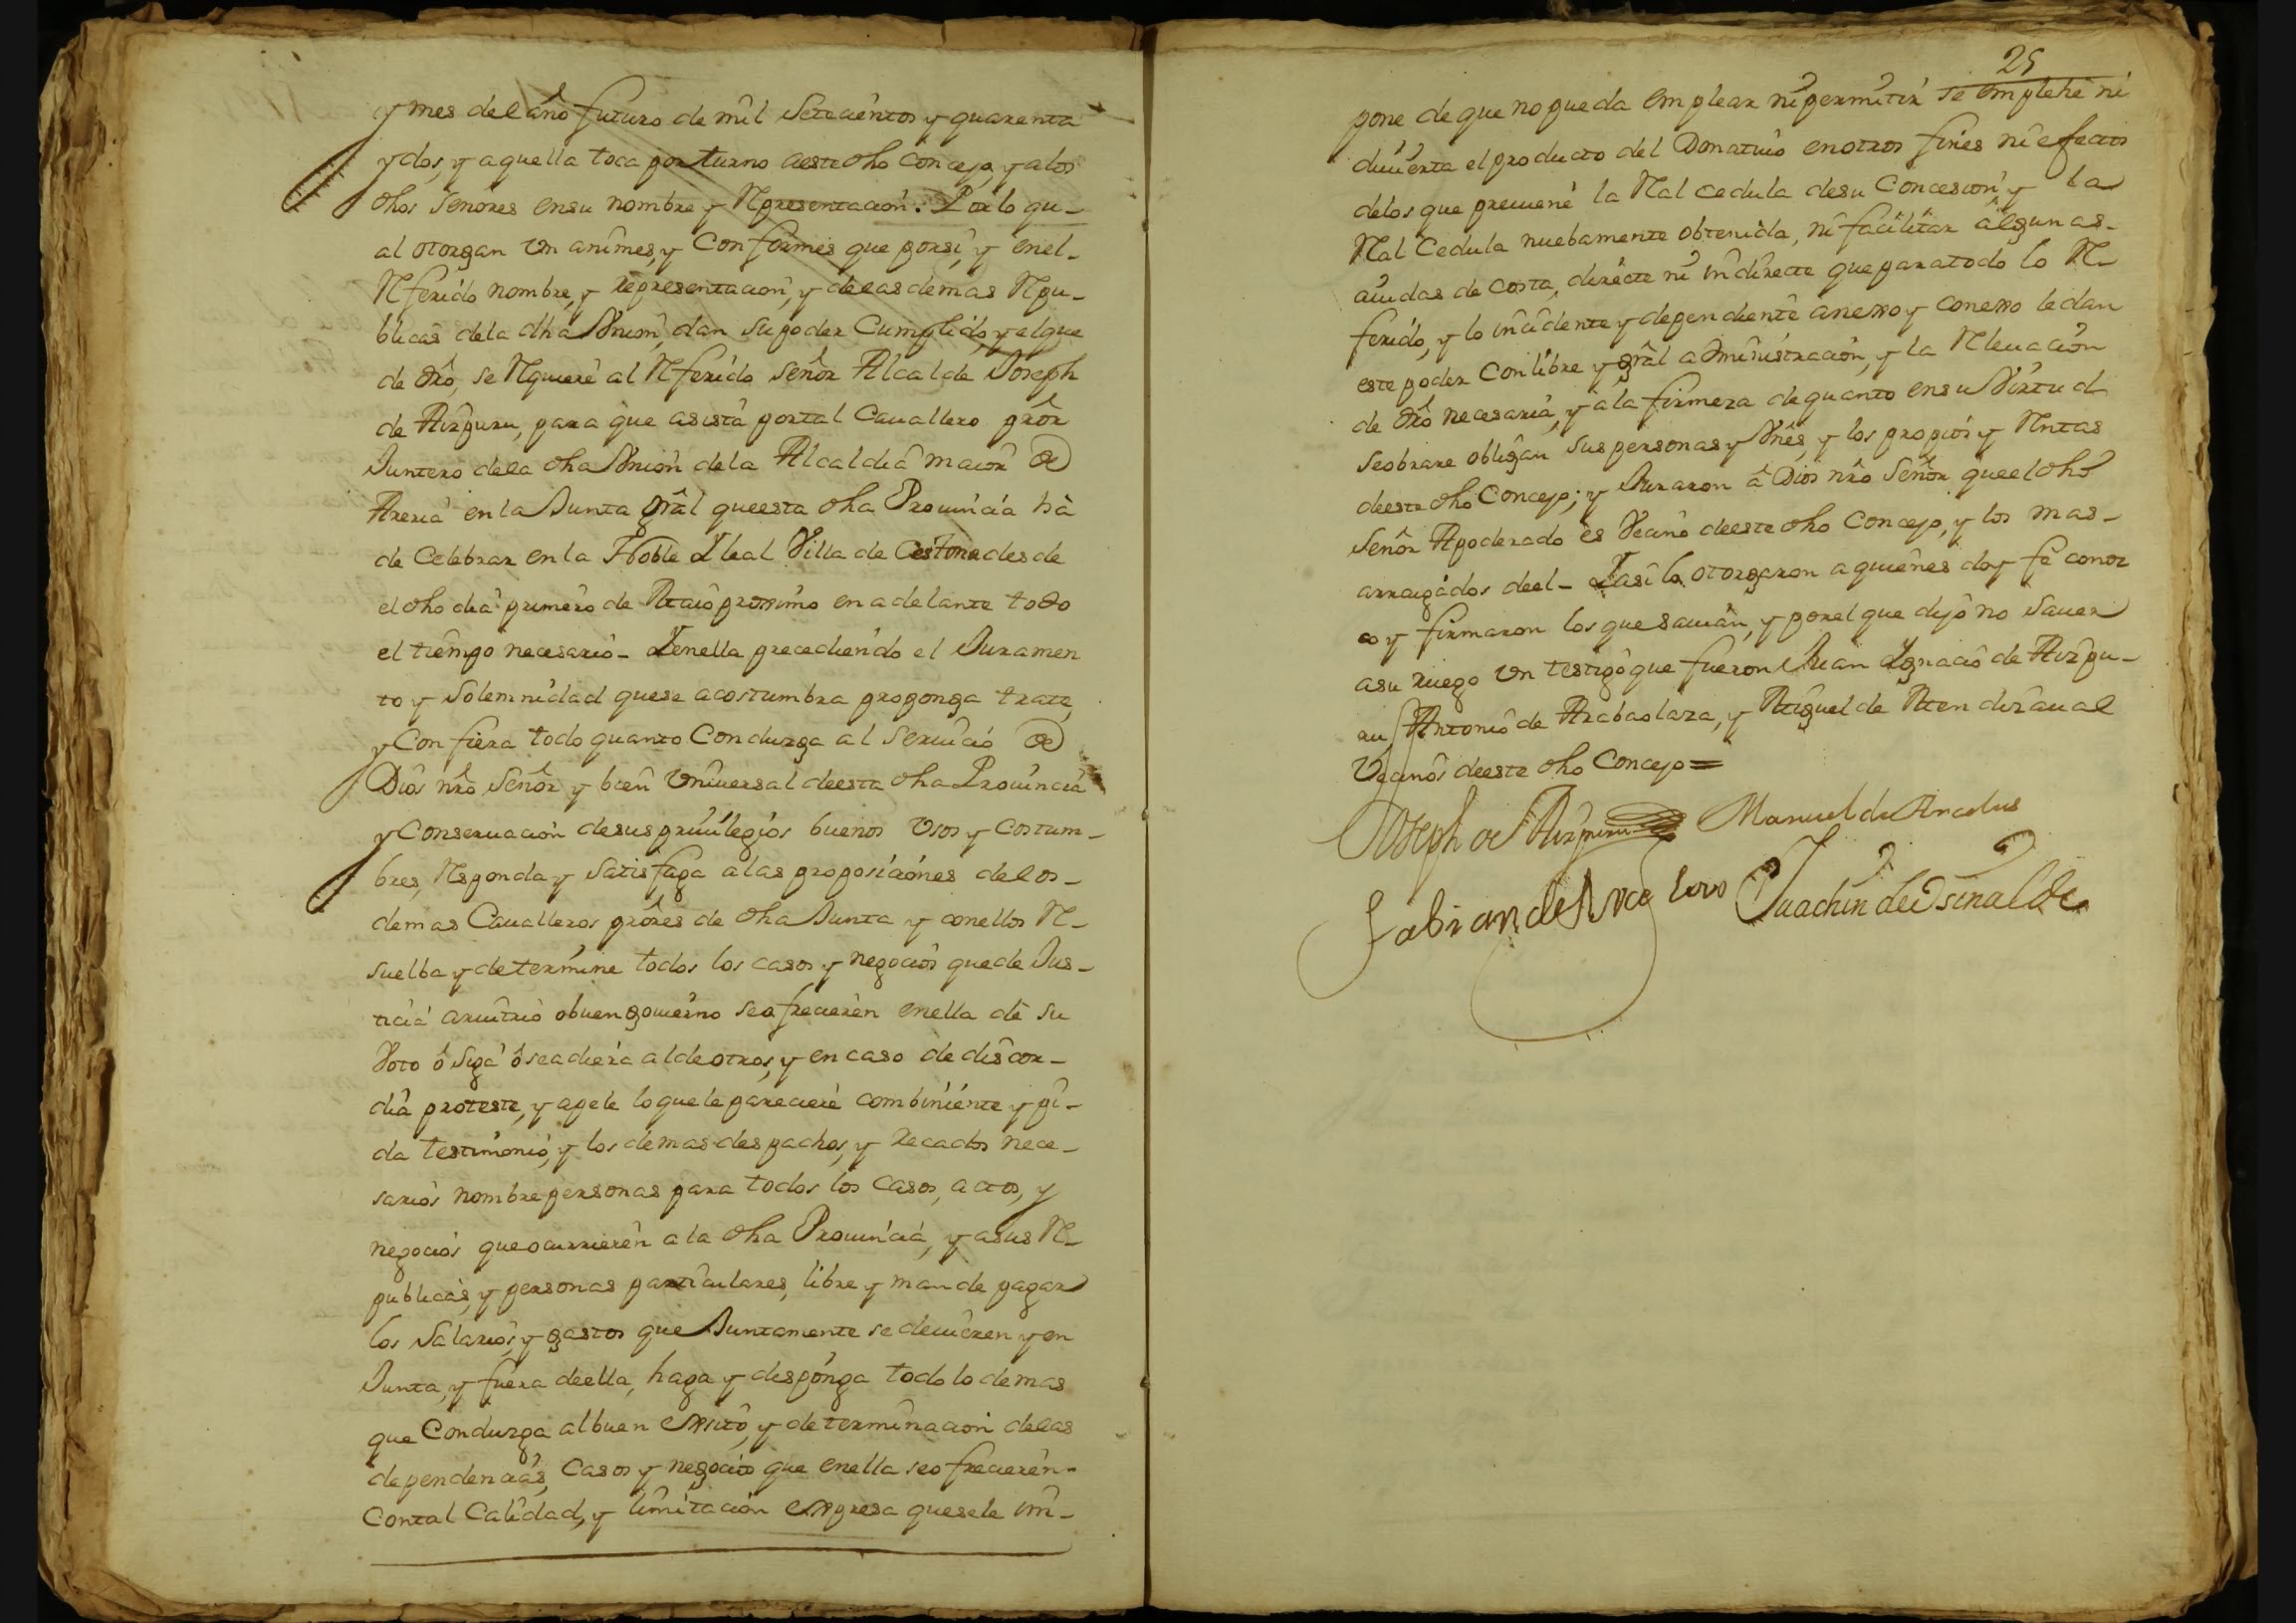 y mes del año futuro de mil Setecientos y quarenta
y dos, y aquella toca por turno aeste dho Concejo, y alos
dhos Señores ensu nombre y Rpresentacion. Por lo qu-
al otorgan Vn animes, y Conformes que porsi, y enel-
Rferido nombre, y representacion, y delas demas Rpu-
blicas dela dha Vnion, dan su poder Cumplido, y elque
de dro, se Rquiere al Rferido señor Alcalde Joseph
de Aizpuru, para que asista portal Cauallero prôr
Juntero dela dha Vnion dela Alcaldia maior de
Areria en la Junta grâl queesta dha Prouincia hà
de Celebrar en la Noble Y leal Villa de Cestona desde
el dho dia primero de Maio proximo en adelante todo
el tiempo necesario- Y enella precediendo el Juramen
to y solemnidad quese acostumbra proponga trate,
y Confiera todo quanto Conduzga al seruicio de
Dios nrô Señor y bien Vniuersal deesta dha Prouincia
y Conseruacion desus priuilegios buenos Vsos y Costum-
bres, Rsponda y Satisfaga a las proposiciones delos-
demas Caualleros prôres de dha Junta y conellos R-
suelba y determine todos los casos y negocios quede Jus-
ticia aruitrio obuen gouierno se ofrecieren enella dè su
Voto ô siga ô seadiera alde otros, y en caso de discor-
dia proteste, y apele loque le pareciere combiniente y pi-
da testimonio, y los demas despachos, y recados nece-
sarios nombre personas para todos los casos, actos, y
negocios queocurrieren a la dha Prouincia, y asus R-
publicas, y personas particulares, libre y mande pagar
los Salarios, y gastos que Juntamente se deuieren y en
Junta, y fuera deella, haga y disponga todo lo demas
que Conduzga albuen exsito, y determinacion delas
dependencias, Casos y negocios que enella seofrecieren-
Contal Calidad, y limitacion expresa quesele im-
25
pone de que no pueda emplear ni permitir se emplehe ni
diuierta el producto del Donatiuo enotros fines ni efectos
delos que preuiene la Ral cedula desu Concesion, y la
Ral Cedula nuebamente obtenida, ni facilitar algunas-
aiudas de costa, directe ni indirecte que paratodo lo R-
ferido, y lo incidente y dependiente anexo y conexo ledan
este poder Con libre y grâl administracion, y la Rleuacion
de drô necesaria, y a la firmeza dequanto ensu Virtud
seobrare obligan sus personas y Vnês, y los propios y Rntas
deeste dho Concejo; y Juraron â Dios nrô Señor queel dho
Señor Apoderado es Vecino deeste dho Concejo, y los mas-
arraigados deel- Yasi lo otorgaron a quienes doy fe conoz
co y firmaron los que sauian, y porel que dijo no sauer
asu ruego Vn testigo que fueron Juan Ygnacio de Aizpu-
ru, Antonio de Arabaolaza, y Miguel de Mendizaual
Vecinos deeste dho Concejo =
Joseph de Aizpuru Manuel de Arcelus
Fabian de Arcelus Juachin de Ysinalde